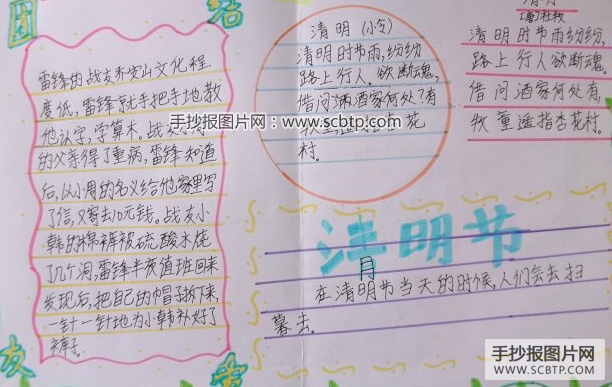 团
结
友
爱
雷锋的战友乔安山文化程
度低,雷锋就手把手地教
他认字,学算术。战友
的父亲得了重病,雷锋知道
后,以小周的名义给他家里写
了信,又寄去10元钱。战友小
韩的棉裤被硫酸水烧
了几个洞,雷锋半夜值班回来
发现后,把自己的帽子拆下来,
一针一针地为小韩补好了
裤子。
清明(小令)
清明时节雨,纷纷
路上行人。欲断魂,
借问酒家何处?有
牧童遥指杏花
村。
清明
杜牧
清明时节雨纷纷,
路上行人欲断魂。
借问酒家何处有,
牧童遥指杏花村。
清明节
在清明节当天的时候,人们会去扫
墓去。
手抄报图片网:www.scbtp.com
手抄报图片网
WWW.SCBTP.COM